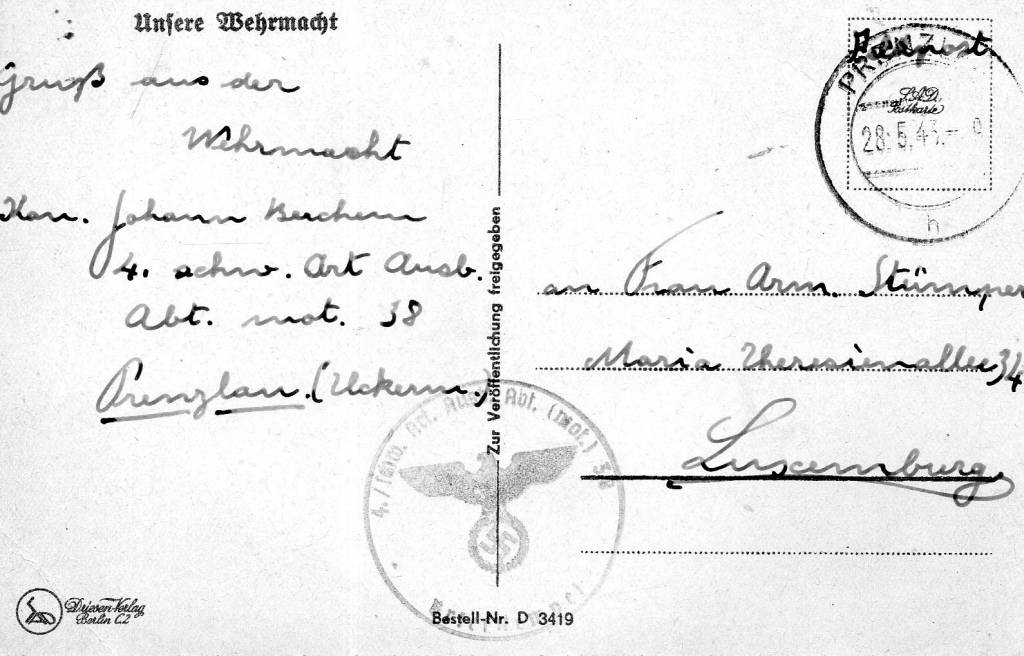 Unsere Wehrmacht
Gruß aus der
Wehrmacht
Kan. Johann Berchem
4. schw. Art Ausb.
Abt. mot. 38
Prenzlau. (Uckerm.)
Zur Veröffentlichung freigegeben
Feldpost
PRENZL
S.A.D.
Postkarte
28.5.43.–9
h
an Frau Arm. Stümper
Maria Theresienallee 34
Luxemburg
4./schw. Art. Ausb. Abt. (mot.)
Briefstempel
Driesen-Verlag
Berlin C.2
Bestell-Nr. D 3419